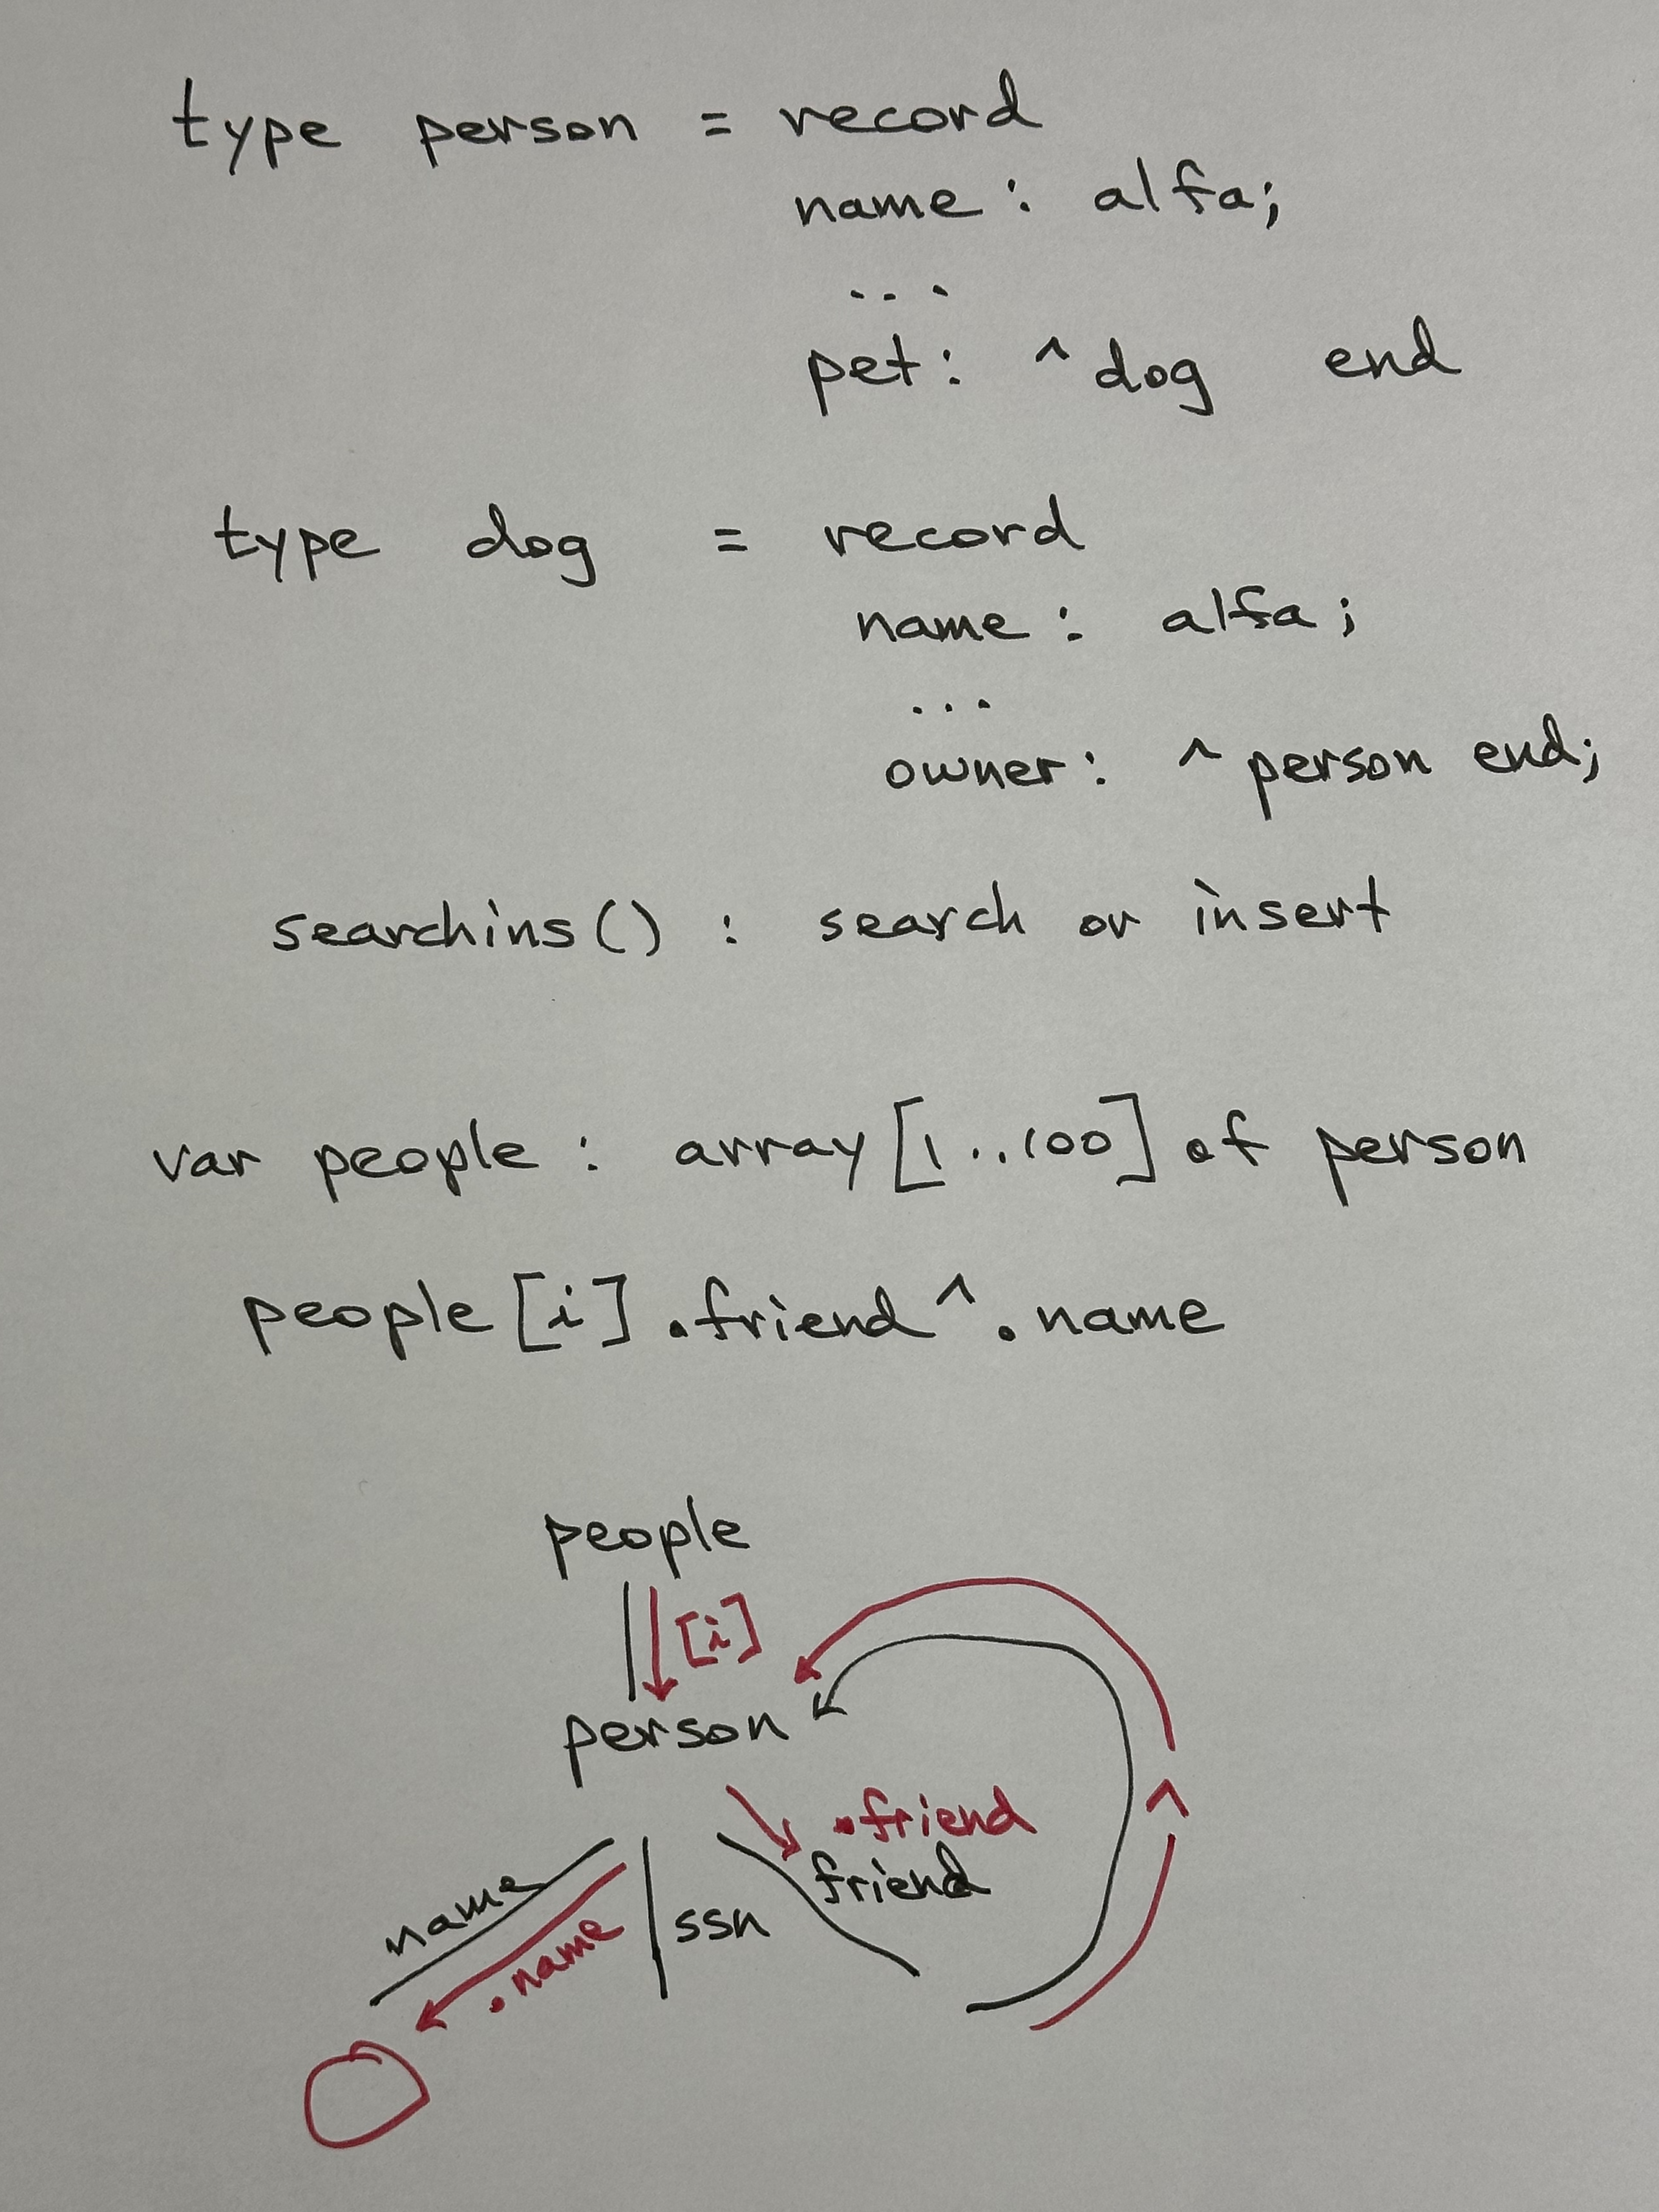 type person = record
name : alfa;
...
pet : ^ dog end
type dog = record
name : alfa ;
...
owner : ^ person end;
searchins() : search or insert
var people : array [1..100] of person
people [i] .friend ^ .name
people
[i]
person
.friend
friend
^
name
.name
ssn